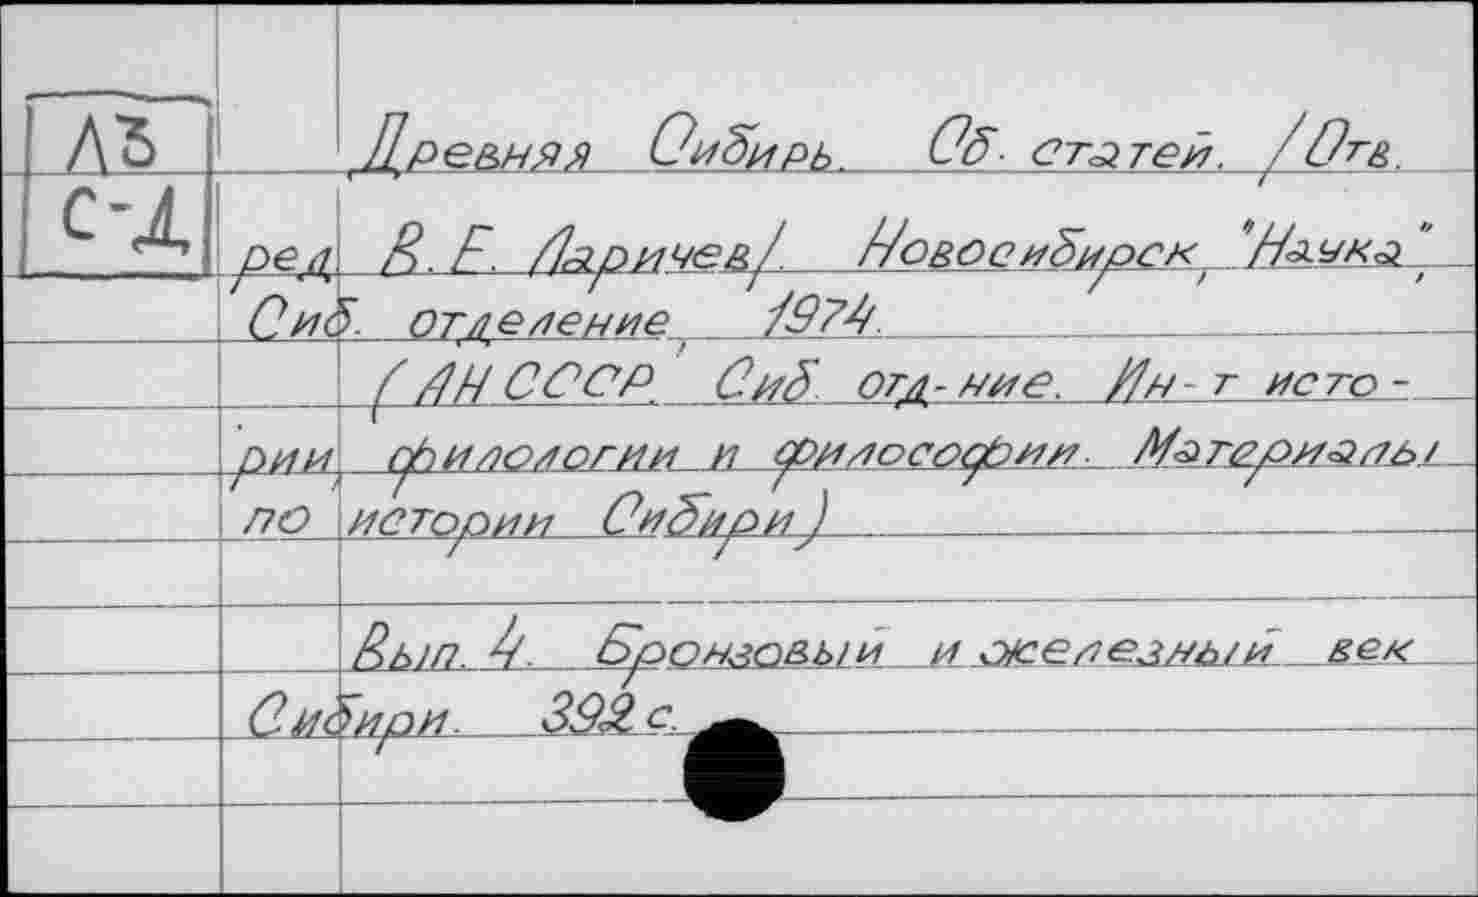 ЛБ
С-Д
Древняя Сибирь. Сб. статей. /Отв.
ред. В. Е. Ларичев/. Новосибирск, "Наука",
Сиб. отделение, 1974.
(АН СССР. Сиб. отд-ние. Ин-т исто-
рии, филологии и философии. Материалы
по истории Сибири)
Вып. 4. Бронзовый и железный век
Сибири. 392 с.